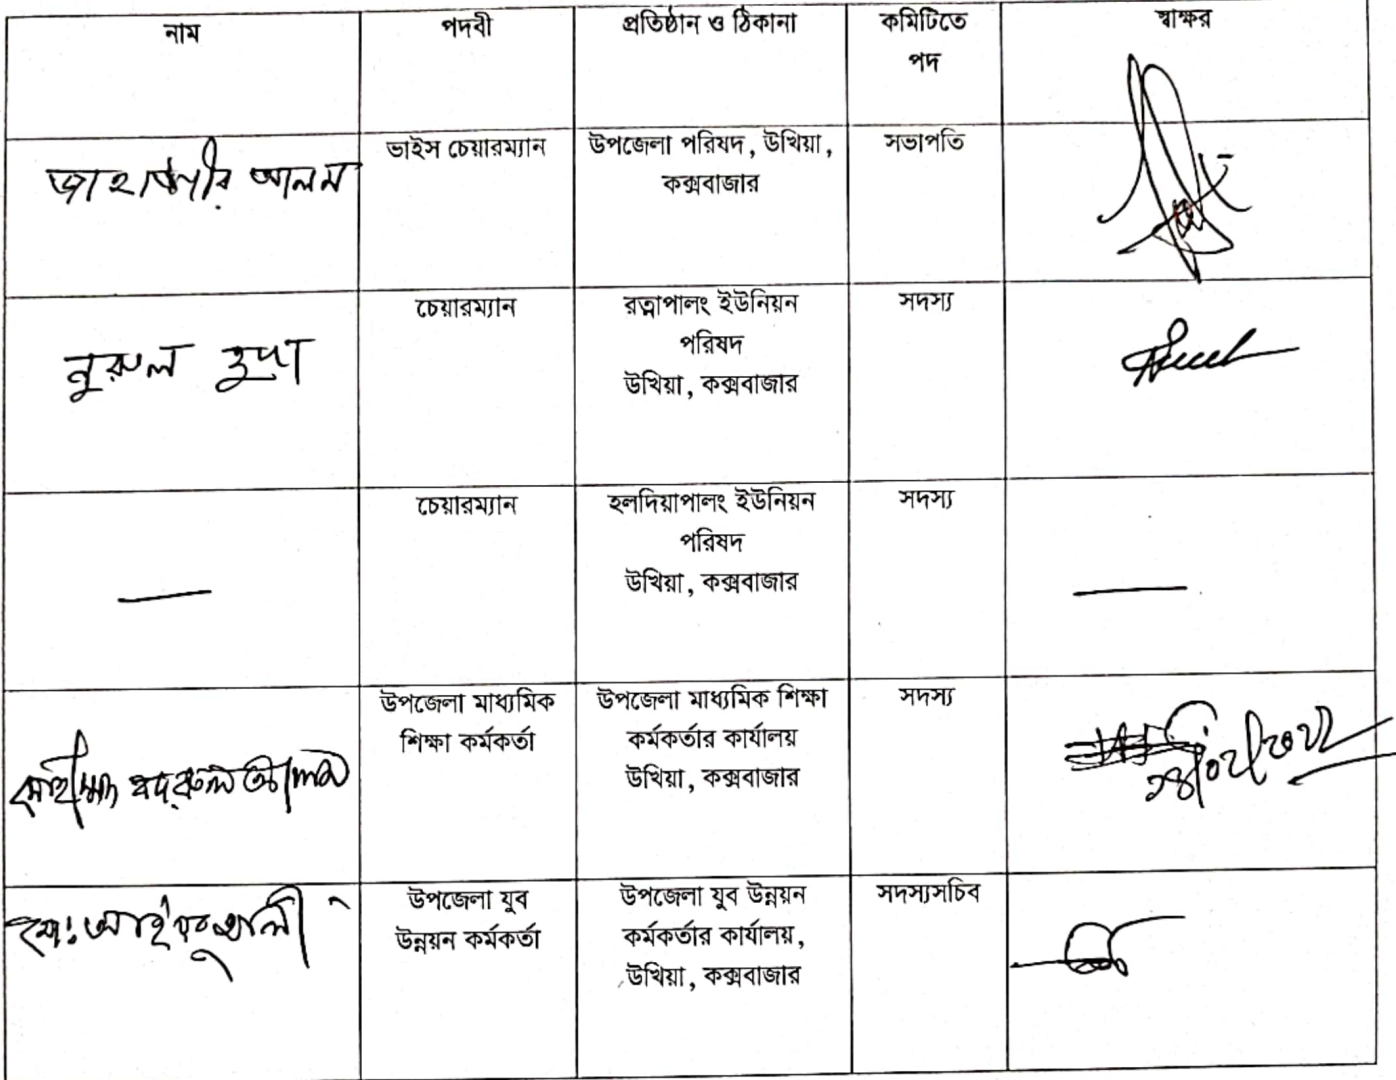 নাম
পদবী
প্রতিষ্ঠান ও ঠিকানা
কমিটিতে
পদ
স্বাক্ষর
জাহাঙ্গীর আলম
ভাইস চেয়ারম্যান
উপজেলা পরিষদ, উখিয়া,
কক্সবাজার
সভাপতি
নুরুল হুদা
চেয়ারম্যান
রত্নাপালং ইউনিয়ন
পরিষদ
উখিয়া, কক্সবাজার
সদস্য
চেয়ারম্যান
হলদিয়াপালং ইউনিয়ন
পরিষদ
উখিয়া, কক্সবাজার
সদস্য
বদরুল আলম
উপজেলা মাধ্যমিক
শিক্ষা কর্মকর্তা
উপজেলা মাধ্যমিক শিক্ষা
কর্মকর্তার কার্যালয়
উখিয়া, কক্সবাজার
সদস্য
উপজেলা যুব
উন্নয়ন কর্মকর্তা
উপজেলা যুব উন্নয়ন
কর্মকর্তার কার্যালয়,
উখিয়া, কক্সবাজার
সদস্যসচিব